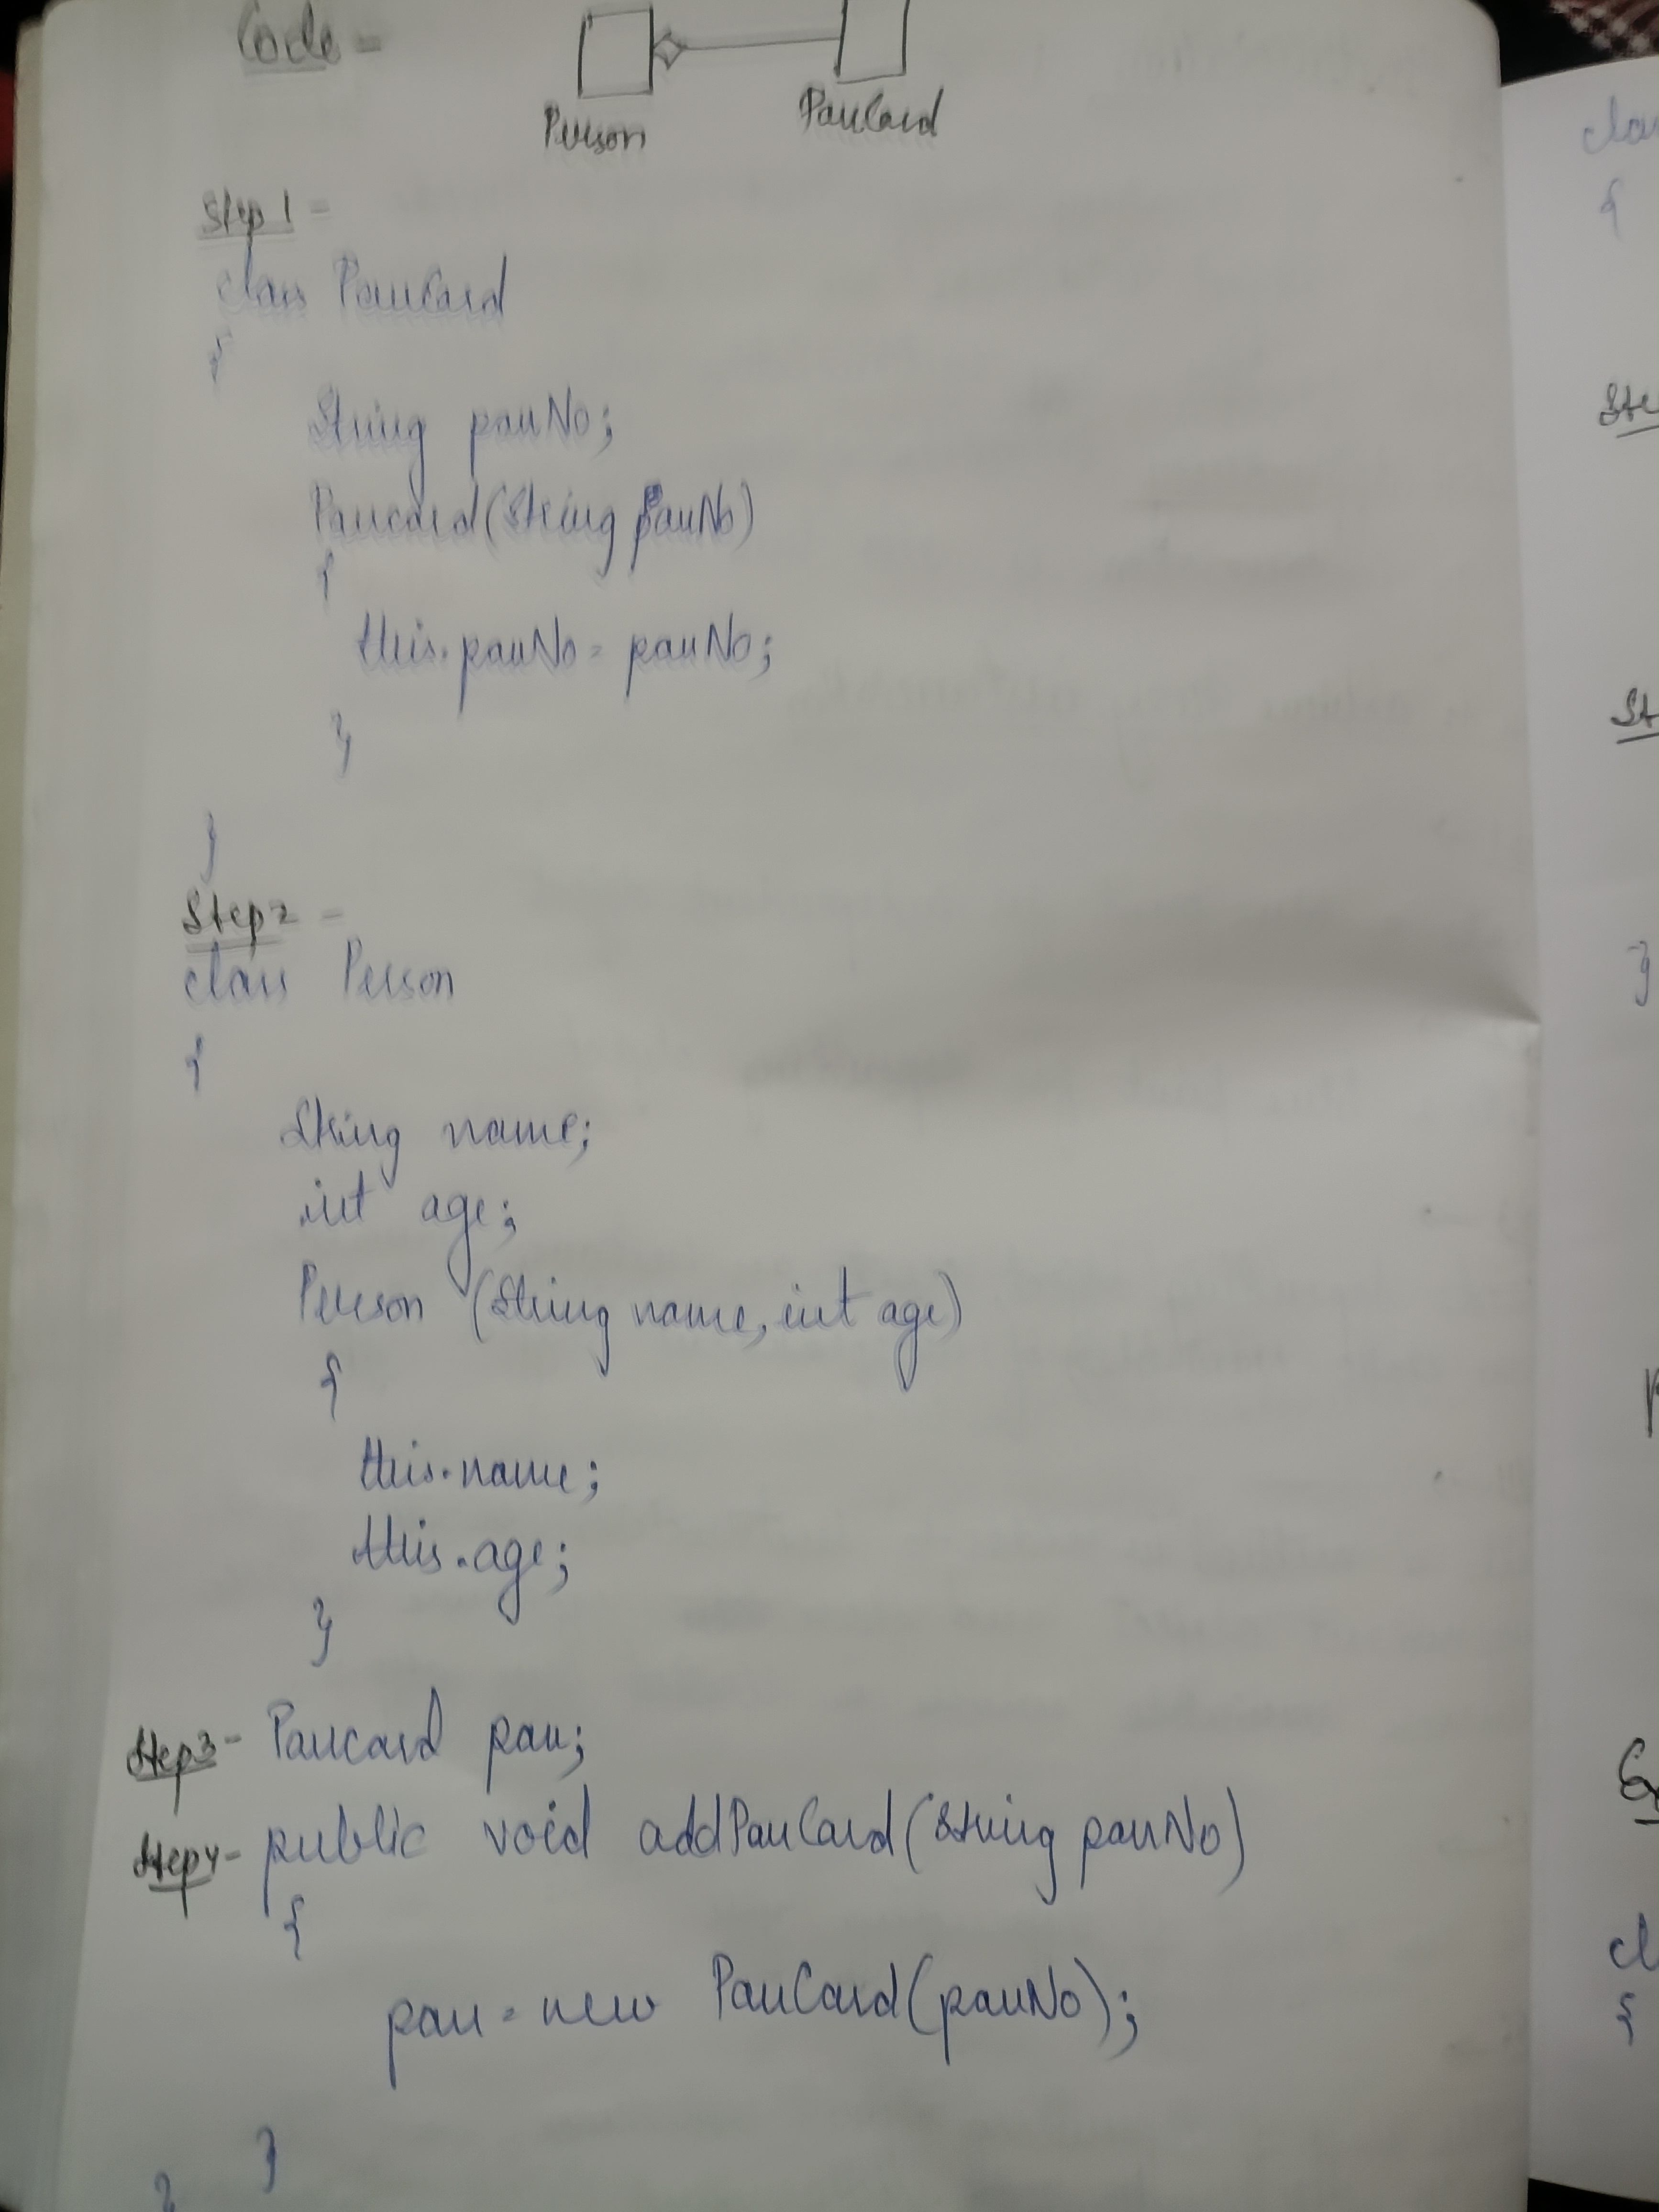 Code =
Person PanCard
Step 1 =
class PanCard
{
String panNo;
Pancard(String panNo)
{
this.panNo = panNo;
}
}
Step 2 =
class Person
{
String name;
int age;
Person (String name, int age)
{
this.name;
this.age;
}
Step 3 - Pancard pan;
Step 4 - public void addPanCard(String panNo)
{
pan = new PanCard(panNo);
}
}
{
}
{